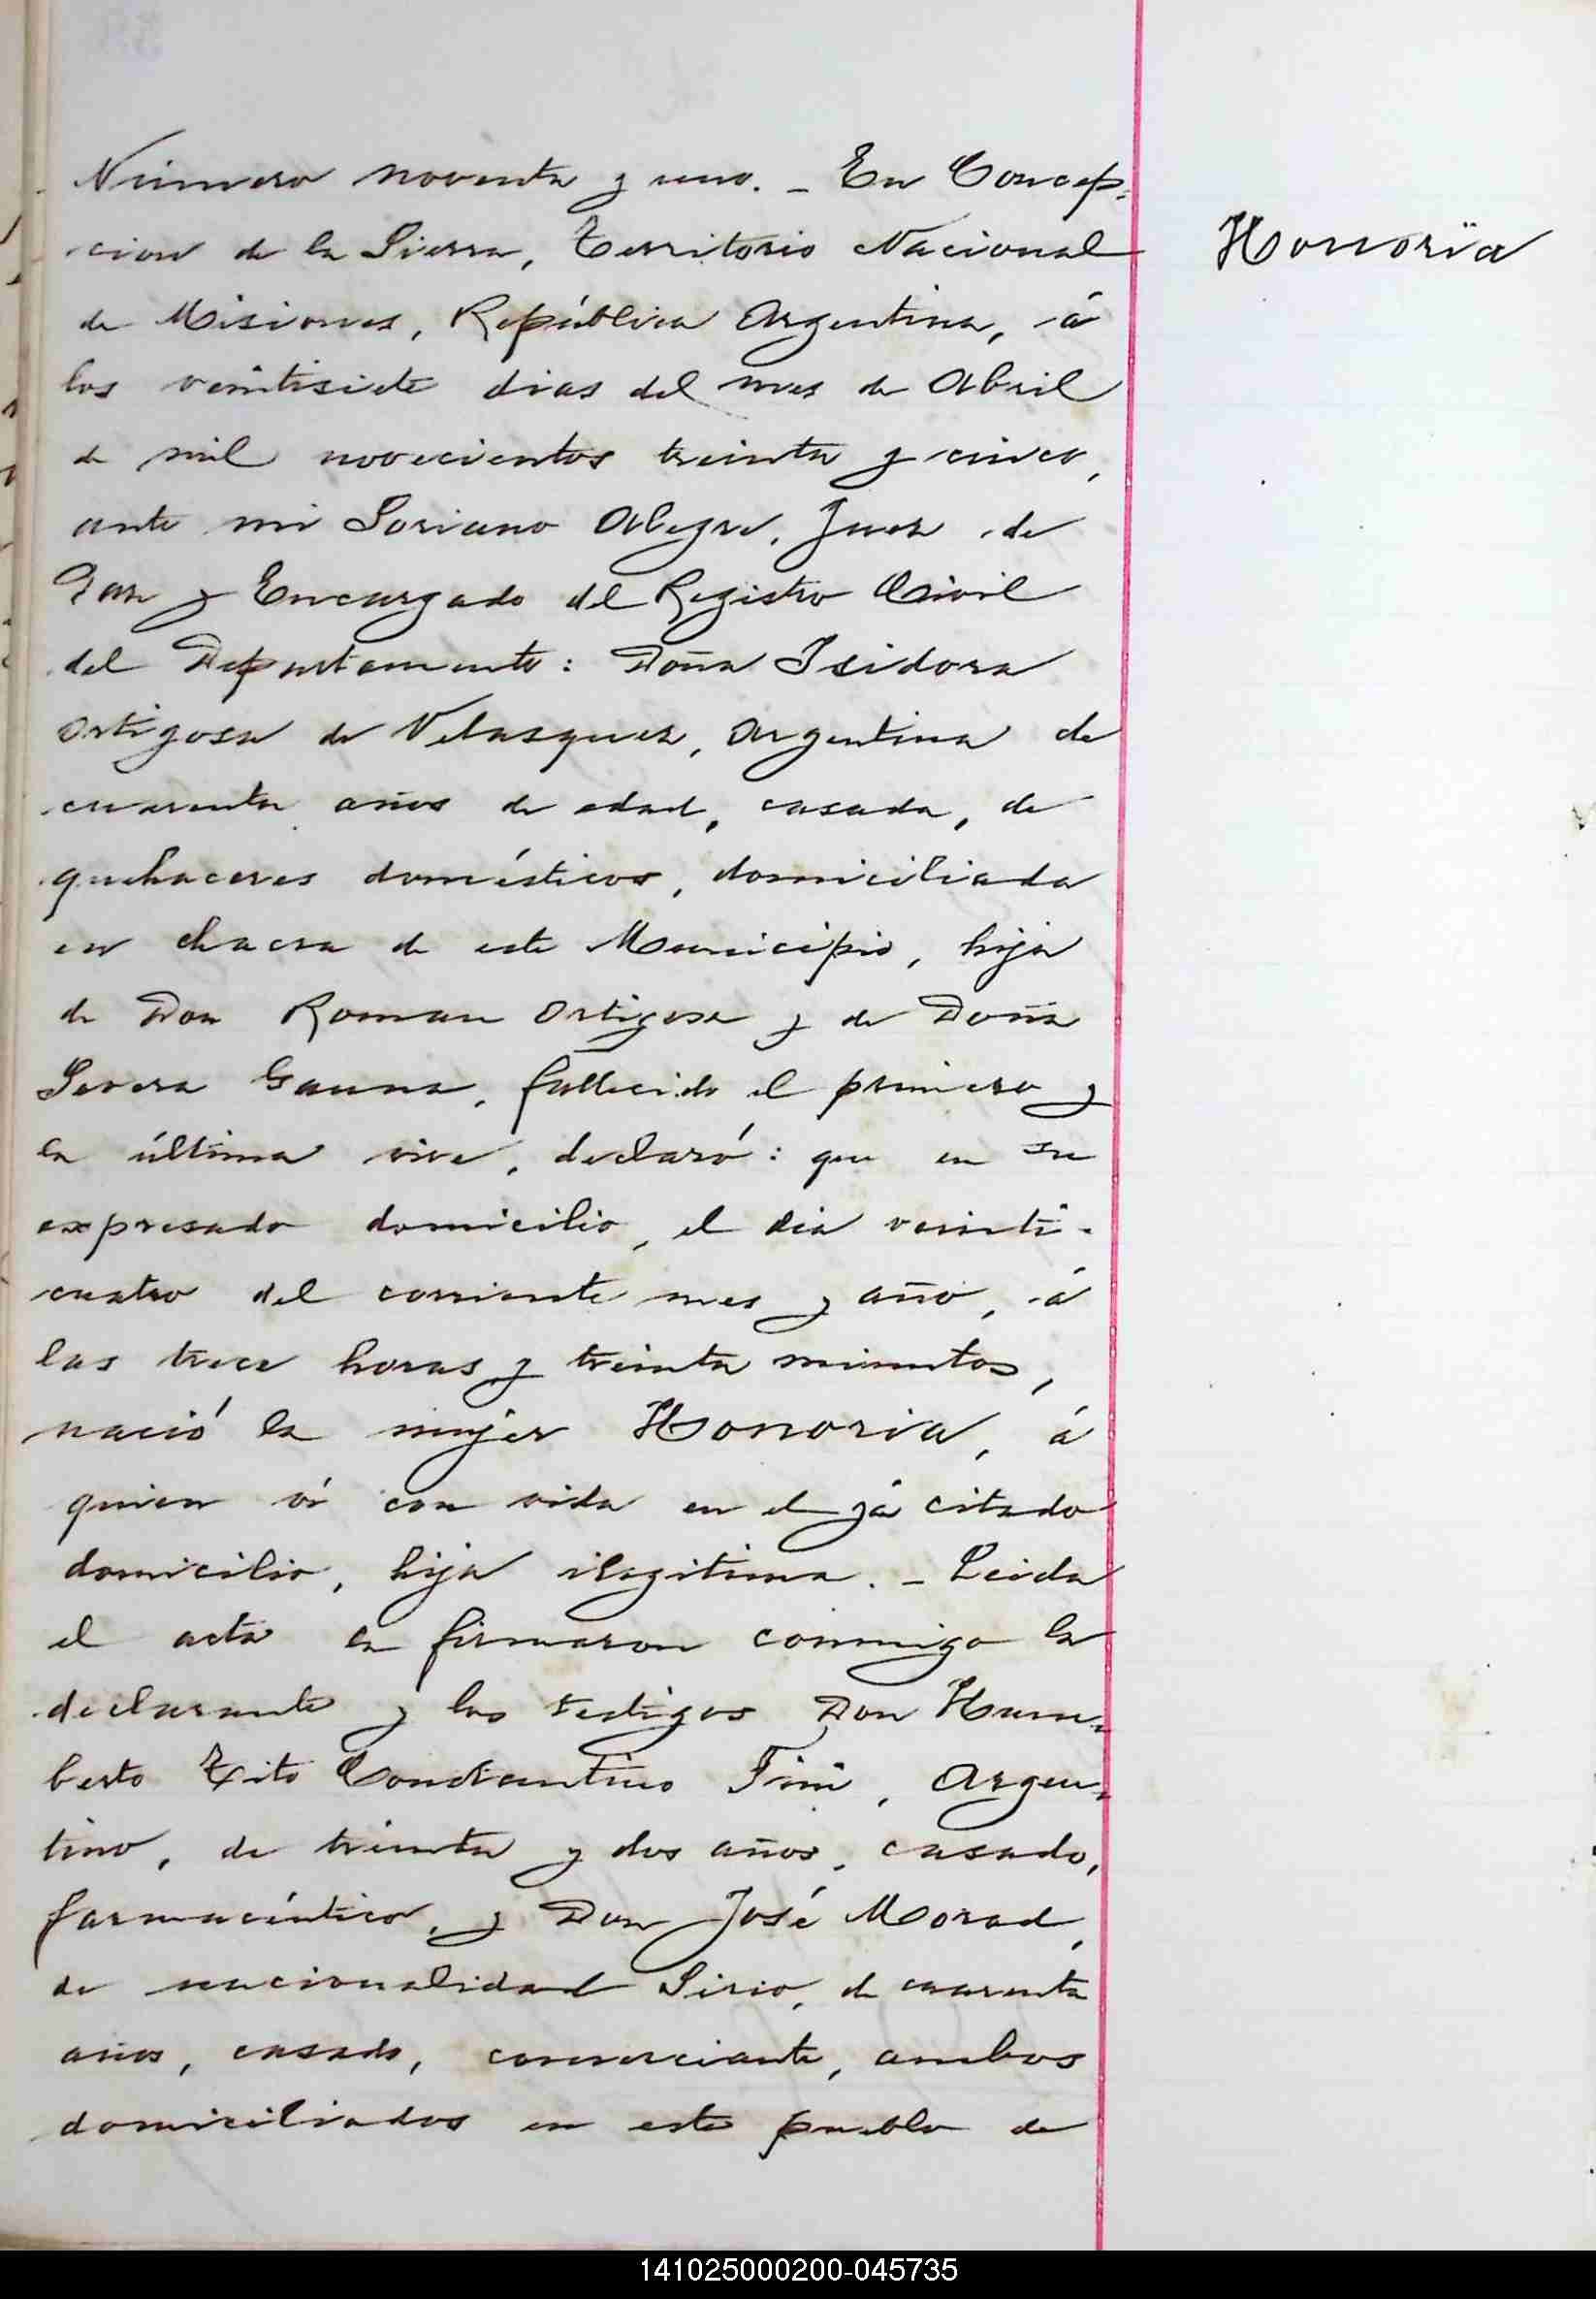 Número noventa y uno. _ En Concep-
cion de la Sierra, Territorio Nacional
de Misiones, República Argentina, á
los veintisiete dias del mes de Abril
de mil novecientos treinta y cinco,
ante mi Soriano Alegre, Juez de
Paz y Encargado del Registro Civil
del Departamento: Doña Isidora
Ortigosa de Velasquez, Argentina de
cuarenta años de edad, casada, de
quehaceres domésticos, domiciliada
en chacra de este Municipio, hija
de Don Roman Ortigosa y de Doña
Severa Gauna, fallecido el primero y
la última vive, declaró: que en su
expresado domicilio, el dia veinti-
cuatro del corriente mes y año, á
las trece horas y treinta minutos,
nació la mujer Honoria, á
quien vi con vida en el já citado
domicilio, hija ilegitima. _ Leida
el acta la firmaron conmigo la
declarante y los testigos Don Hum-
berto Tito Constantino Fini, Argen-
tino, de treinta y dos años, casado,
farmacéutico, y Don José Morad,
de nacionalidad Sirio, de cuarenta
años, casado, comerciante, ambos
domiciliados en este pueblo de
Honoria
141025000200-045735